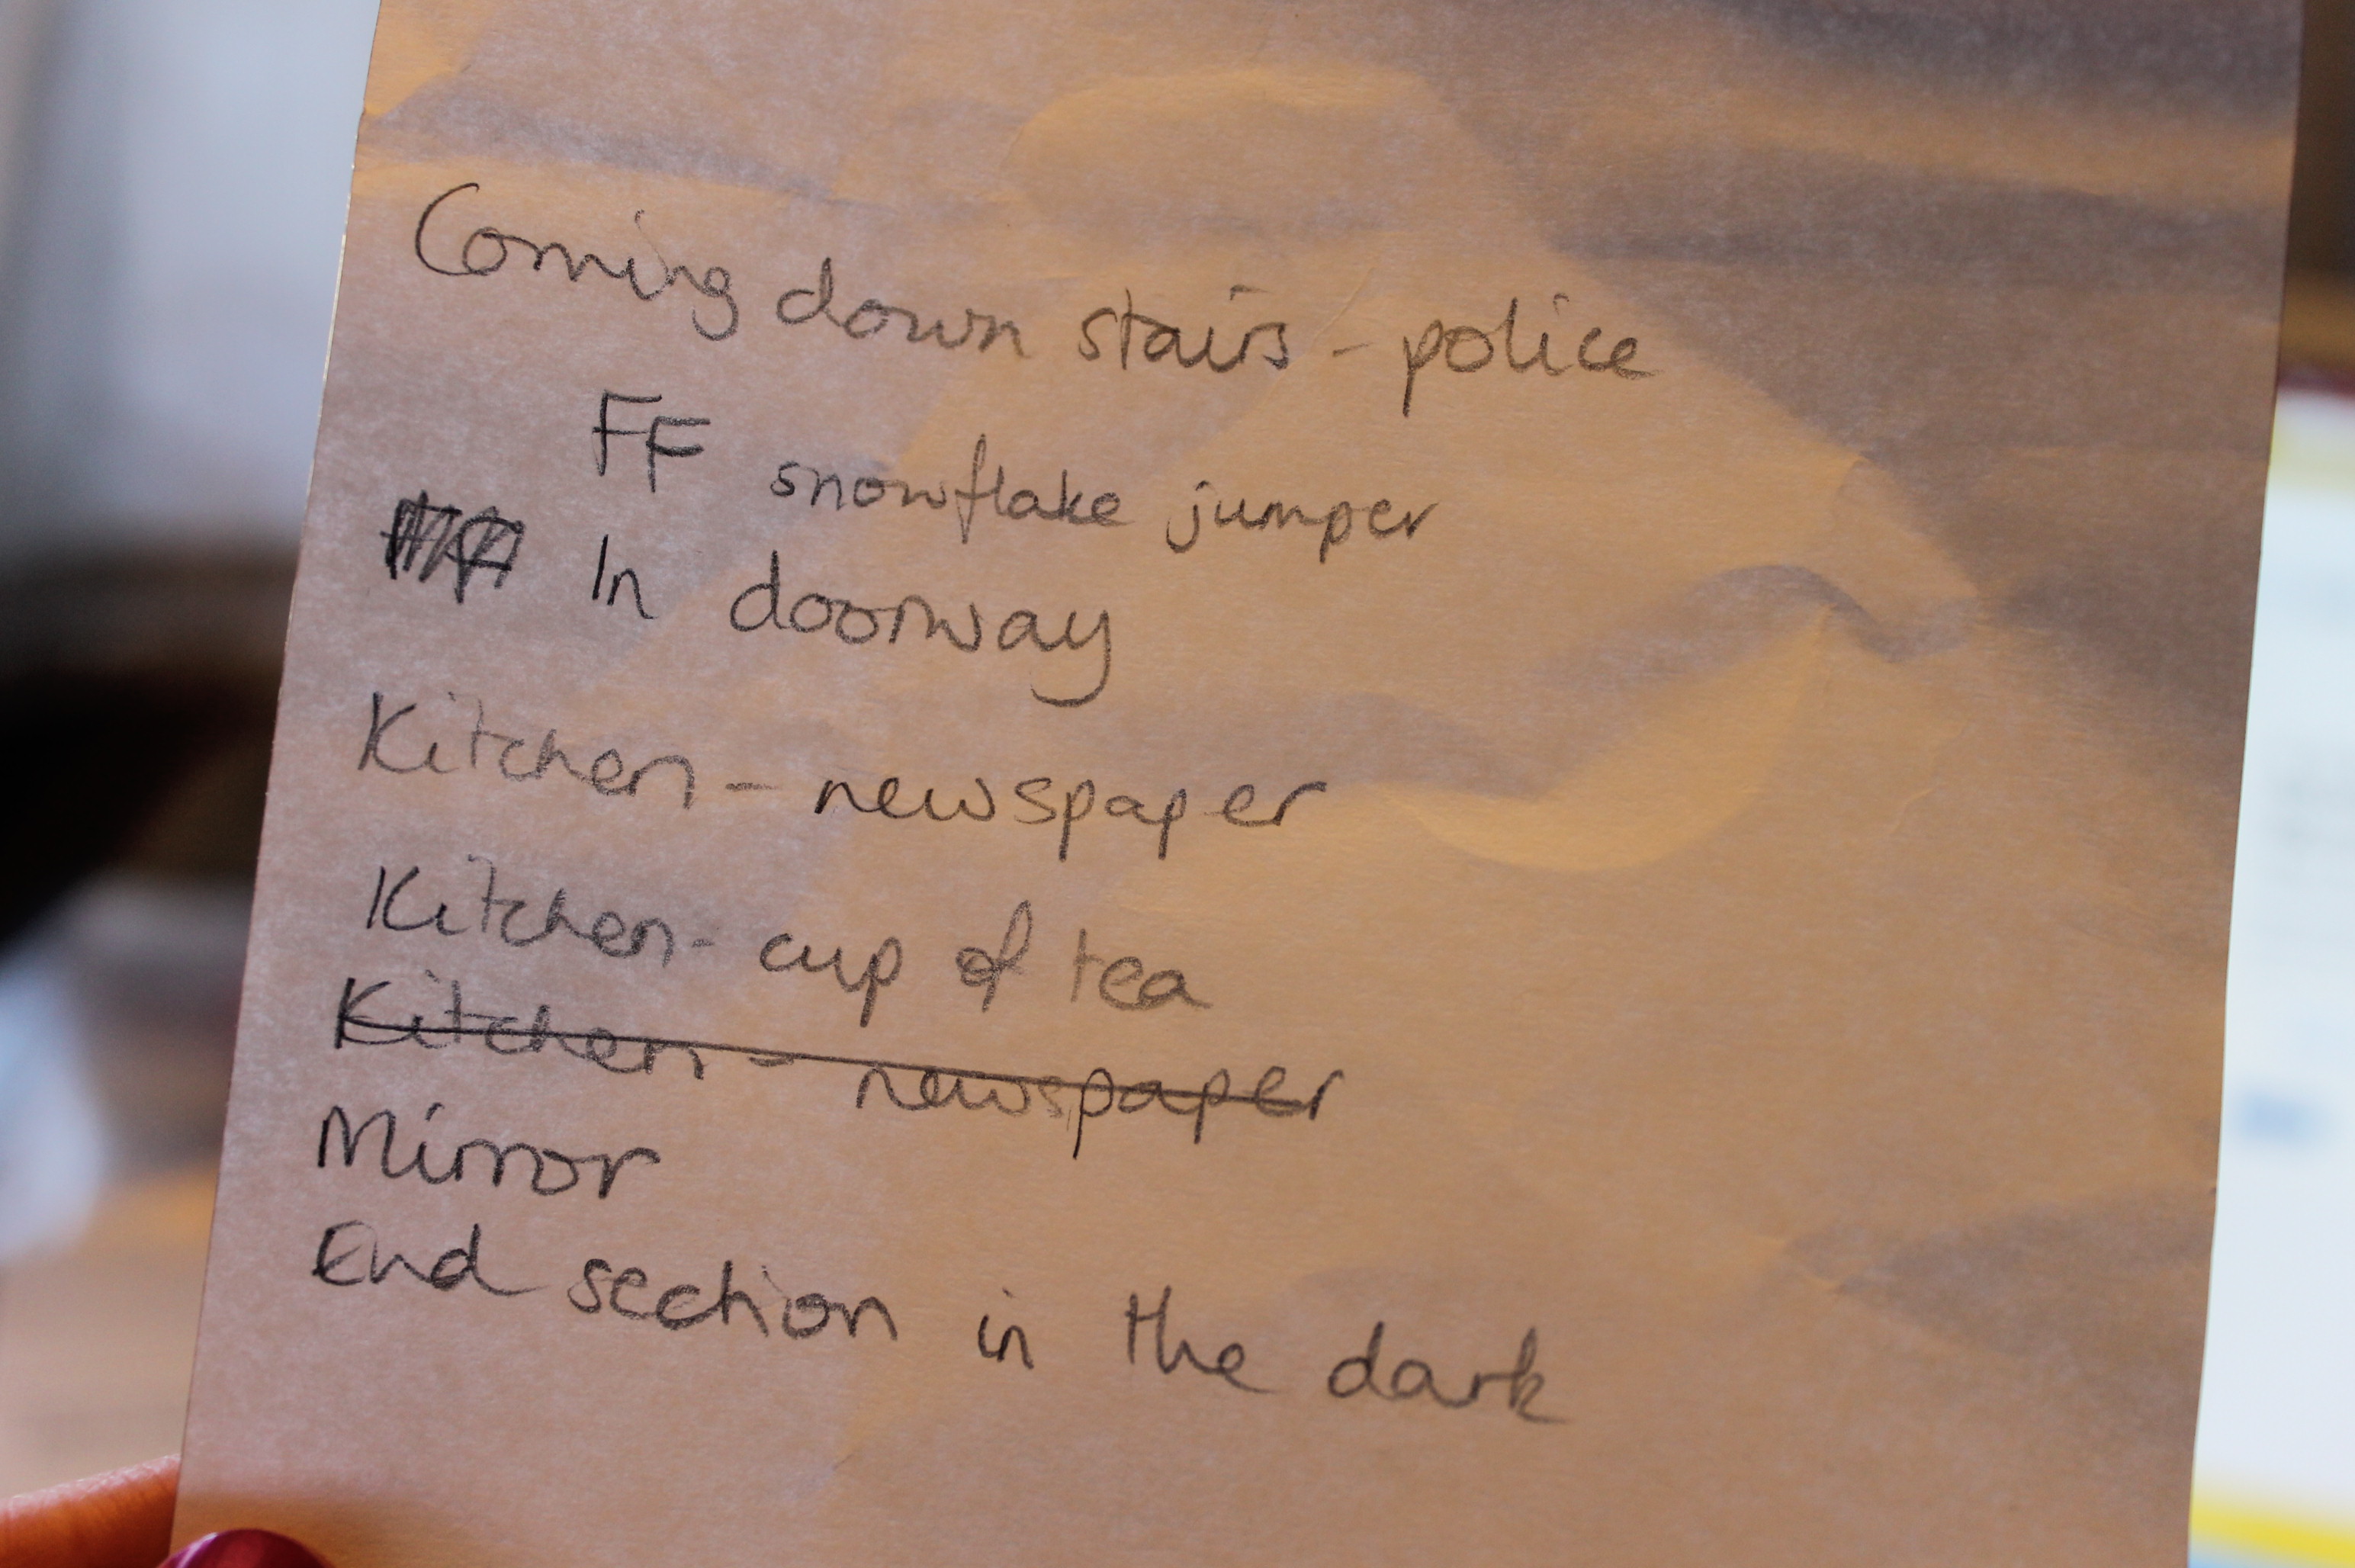 Coming down stairs - police
FF snowflake jumper
In doorway
Kitchen - newspaper
Kitchen - cup of tea
Kitchen - newspaper
Mirror
End section in the dark